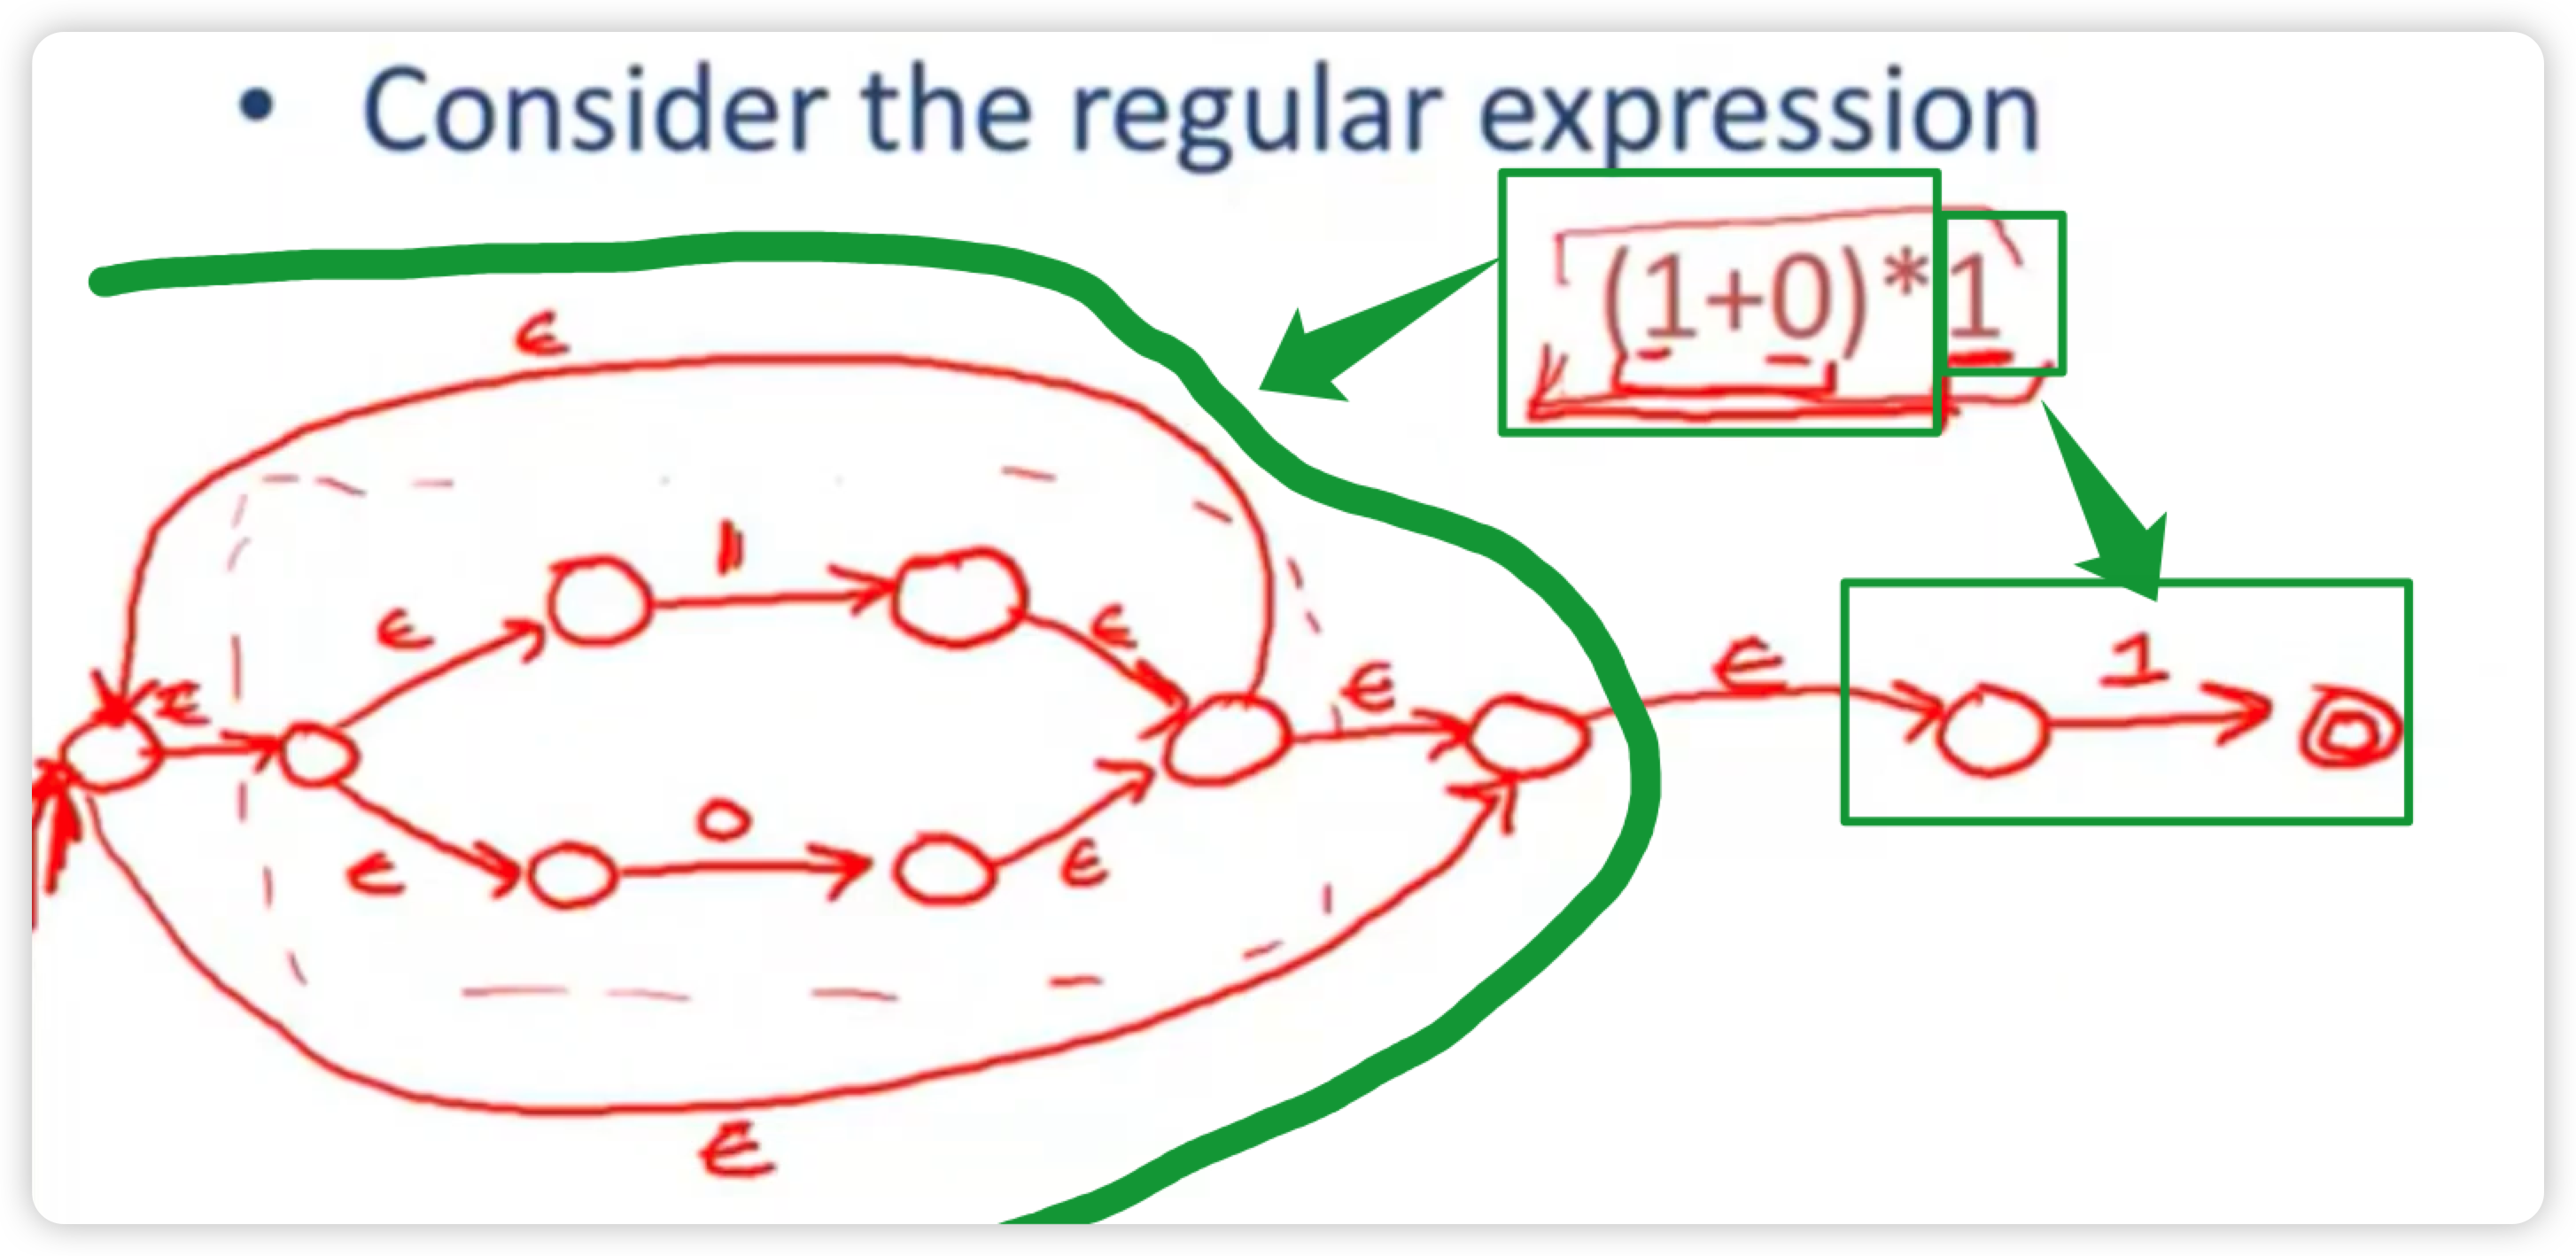 • Consider the regular expression
(1+0)*1
ε
1
ε
ε
ε
ε
ε
1
0
ε
ε
ε